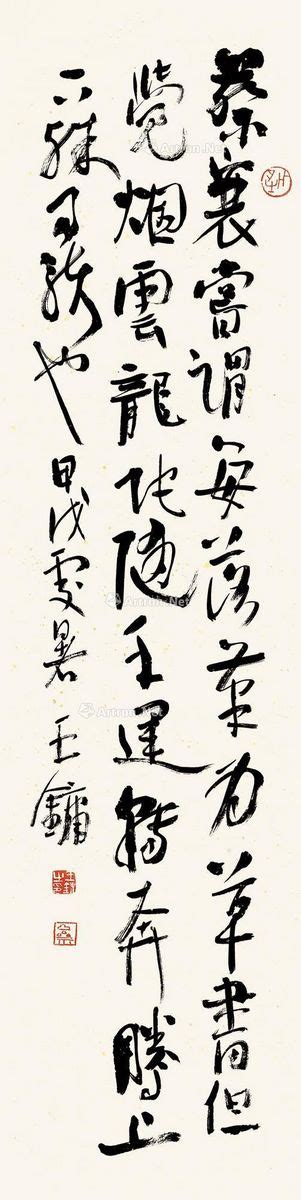 蔡襄嘗謂每落筆為草書但
覺烟雲龍蛇随手運轉奔騰上
下殊可駭也甲戌處暑王鏞
Artron.Net
Artron.Net
Artron.Net